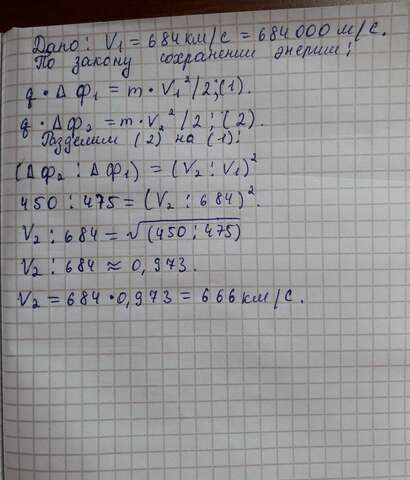 Дано: V₁ = 684 км/с = 684 000 м/с.
По закону сохранении энергии:
q · Δφ₁ = m · V₁²/2; (1).
q · Δφ₂ = m · V₂²/2; (2).
Разделим (2) на (1):
(Δφ₂ : Δφ₁) = (V₂ : V₁)²
450 : 475 = (V₂ : 684)².
V₂ : 684 = √(450 : 475)
V₂ : 684 ≈ 0,973.
V₂ = 684 · 0,973 = 666 км/с.